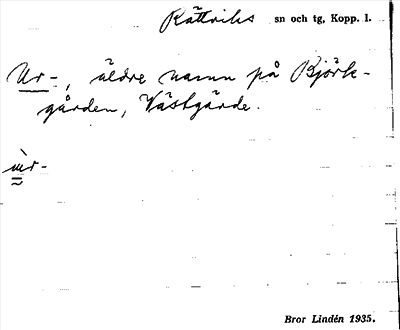 Rättviks sn och tg, Kopp. l.
Ur-, äldre namn på Björk-
gården, Västgärde.
ùr-
Bror Lindén 1935.